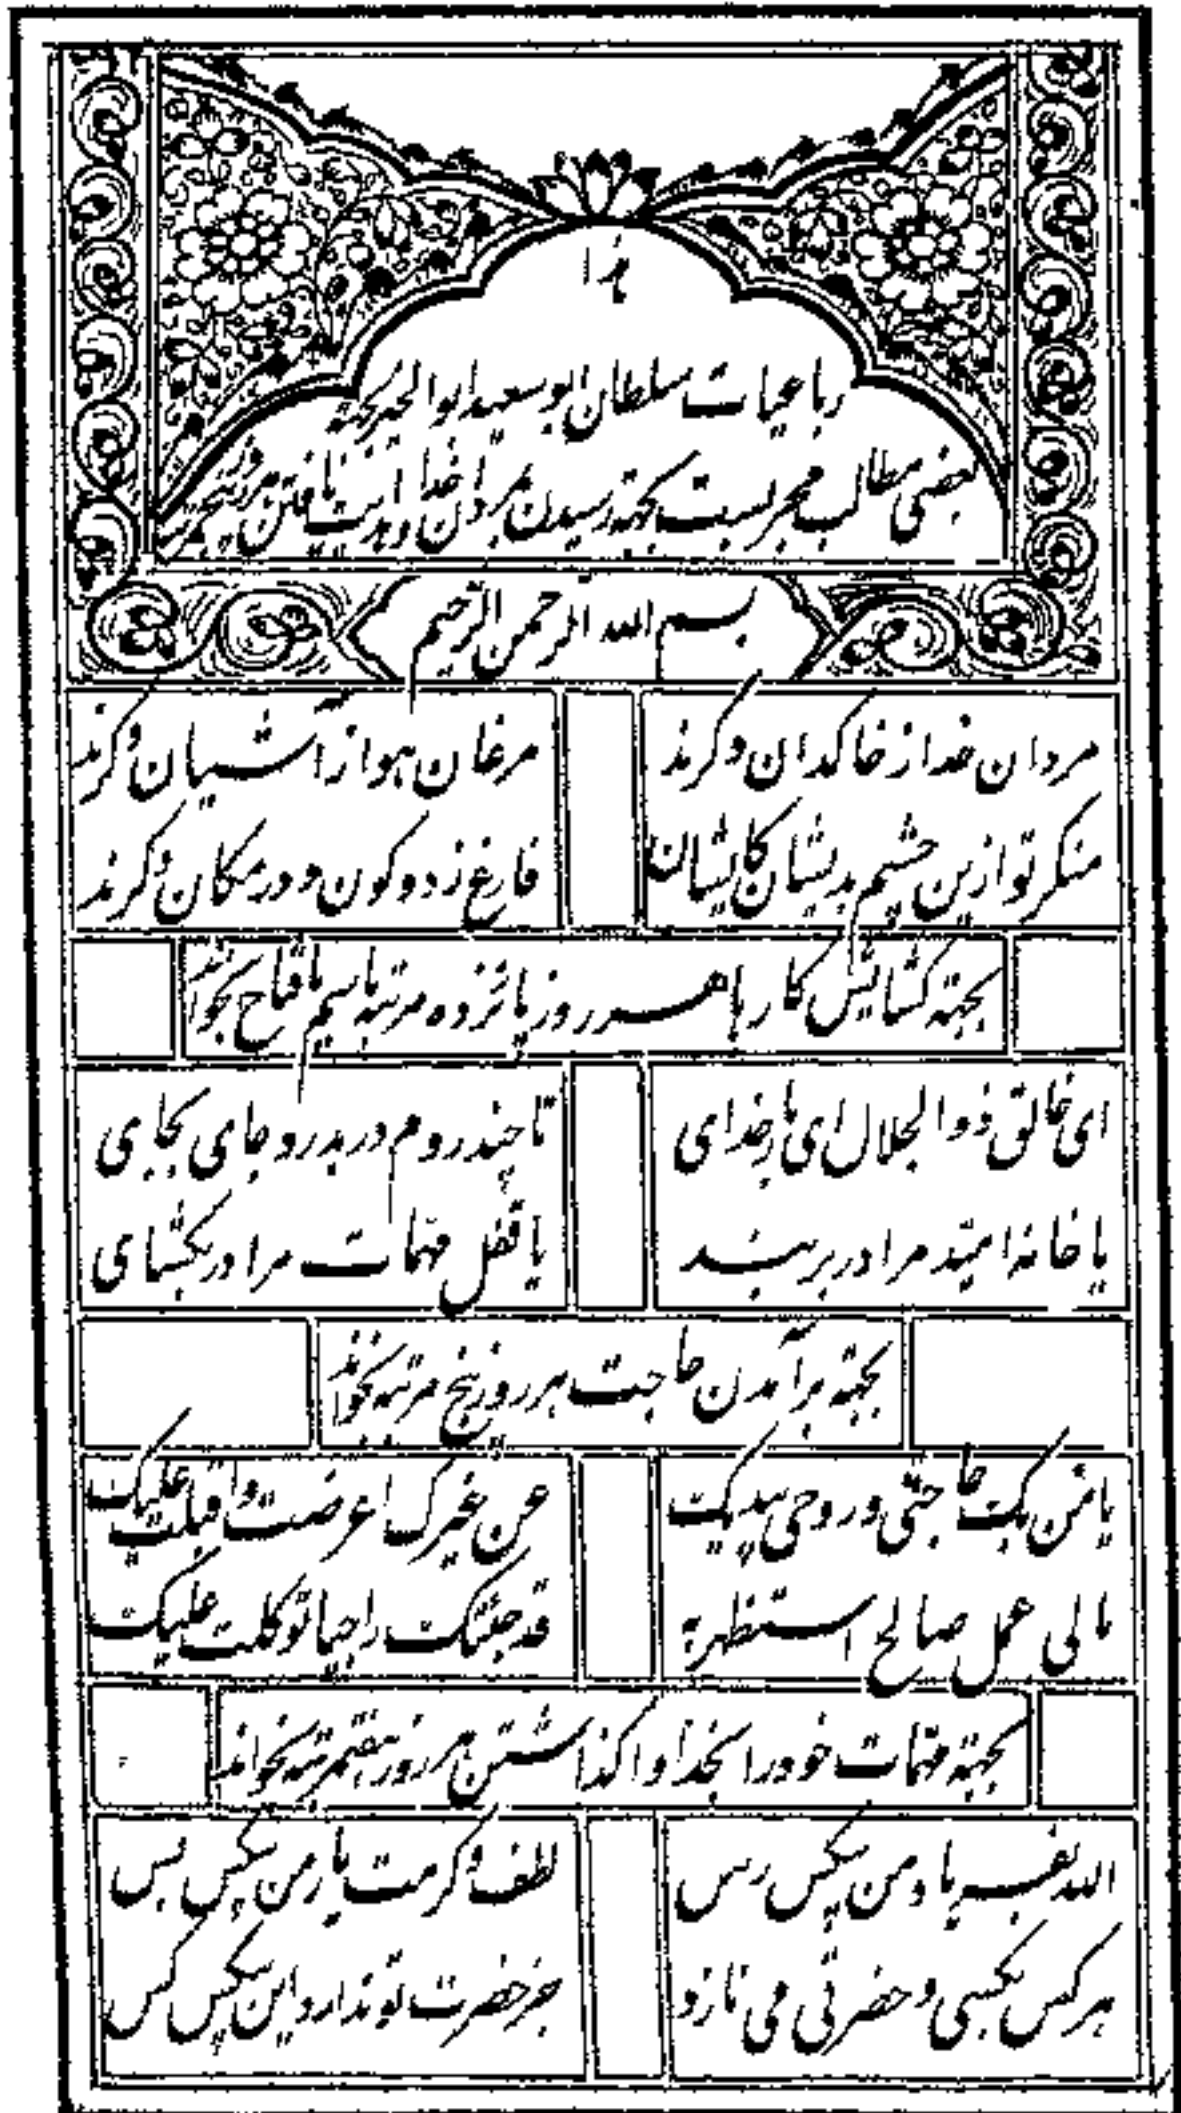 هذا
رباعیات سلطان ابوسعید ابوالخیر بجهته
بعضی مطالب مجربست بجهته رسیدن بمردان خدا و هدایت یافتن هر روز پنج
بسم الله الرحمن الرحیم
مردان خدا ز خاکدان دگرند مرغان هوا ز آشیان دگرند
منکر تو ازین چشم بدیشان کایشان فارغ ز دو کون و در مکان دگرند
بجهته کشایش کارها هر روز پانزده مرتبه باسم یا فتاح بخواند
ای خالق ذوالجلال ای بارخدای تا چند روم در بدر و جای بجای
یا خانه امید مرا در بر بند یا قفل مهمات مرا در بکشای
بجهته برآمدن حاجت هر روز پنج مرتبه بخواند
یا من بک حاجتی و روحی بیدیک عن غیرک اعرضت و اقبلت علیک
مالی عمل صالح استظهر به قد جئتک راجیا توکلت علیک
بجهته مهمات خود را بخدا واکذاشتن هر روز هفتم مرتبه بخواند
الله بفریاد من بیکس رس لطف و کرمت یار من بیکس بس
هر کس بکسی و حضرتی می نازد جز حضرت تو ندارد این بیکس کس